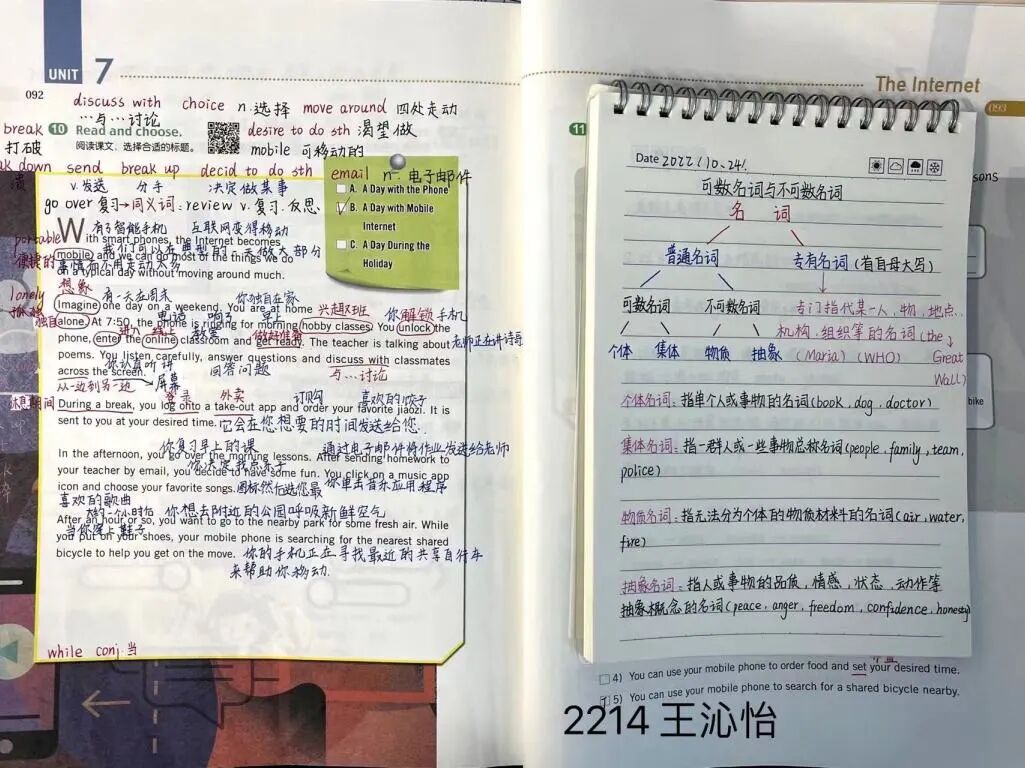 UNIT 7
092
discuss with choice n.选择 move around 四处走动
…与…讨论
break 10 Read and choose. desire to do sth 渴望做
打破 阅读课文，选择合适的标题。 mobile 可移动的
ak down send break up decid to do sth email n. 电子邮件
溃 v.发送 分手 决定做某事
go over 复习→同义词:review v.复习.反思
A. A Day with the Phone
B. A Day with Mobile
Internet
C. A Day During the
Holiday
有了智能手机 互联网变得移动
portable With smart phones, the Internet becomes
便携的 我们可以在典型的一天做大部分
mobile and we can do most of the things we do
事情而不用走动太多
on a typical day without moving around much.
想象
lonely 有一天在周末 你独自在家
孤独 Imagine one day on a weekend. You are at home 兴趣班 你解锁手机
独自 alone. At 7:50, the phone is ringing for morning hobby classes. You unlock the
进入 线上 教室 做好准备
phone, enter the online classroom and get ready. The teacher is talking about 老师正在讲诗歌
poems. You listen carefully, answer questions and discuss with classmates
你认真听讲 回答问题 与…讨论
across the screen.
从一边到另一边 屏幕
登录 外卖 订购 喜欢的饺子
休息期间 During a break, you log onto a take-out app and order your favorite jiaozi. It is
sent to you at your desired time. 它会在您想要的时间发送给您.
你复习早上的课 通过电子邮件将作业发送给老师
In the afternoon, you go over the morning lessons. After sending homework to
你决定找点乐子
your teacher by email, you decide to have some fun. You click on a music app
icon and choose your favorite songs. 图标然后选您最 你单击音乐应用程序
喜欢的歌曲
大约一个小时后 你想去附近的公园呼吸新鲜空气
After an hour or so, you want to go to the nearby park for some fresh air. While
当你穿上鞋子
you put on your shoes, your mobile phone is searching for the nearest shared
bicycle to help you get on the move. 你的手机正在寻找最近的共享自行车
来帮助你移动.
while conj.当
The Internet
093
11
Date 2022/10.24!
可数名词与不可数名词
名 词
普通名词 专有名词(首字母大写)
可数名词 不可数名词 专门指代某一人,物,地点..
机构.组织等的名词(the
个体 集体 物质 抽象 (Maria)(WHO) Great
Wall)
个体名词:指单个人或事物的名词(book,dog,doctor)
集体名词:指一群人或一些事物总称名词(people,family,team,
police)
物质名词:指无法分为个体的物质材料的名词(air,water,
fire)
抽象名词:指人或事物的品质,情感,状态,动作等
抽象概念的名词(peace,anger,freedom,confidence,honesty)
sons
bike
4) You can use your mobile phone to order food and set your desired time.
5) You can use your mobile phone to search for a shared bicycle nearby.
2214 王沁怡